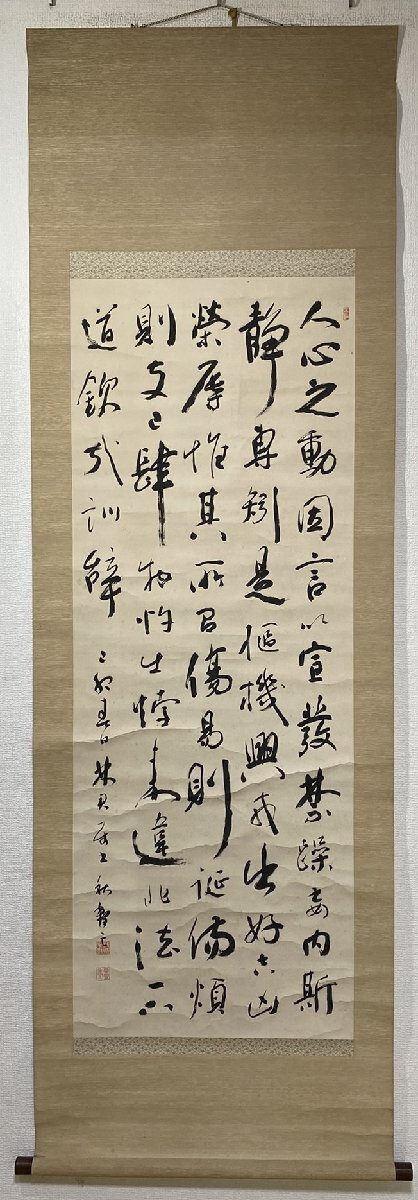 人心之動因言以宣發禁躁妄内斯
靜專矧是樞機興戎出好吉凶
榮辱惟其所召傷易則誕傷煩
則支己肆物忤出悖來違非法不
道欽哉訓辭
己卯春日